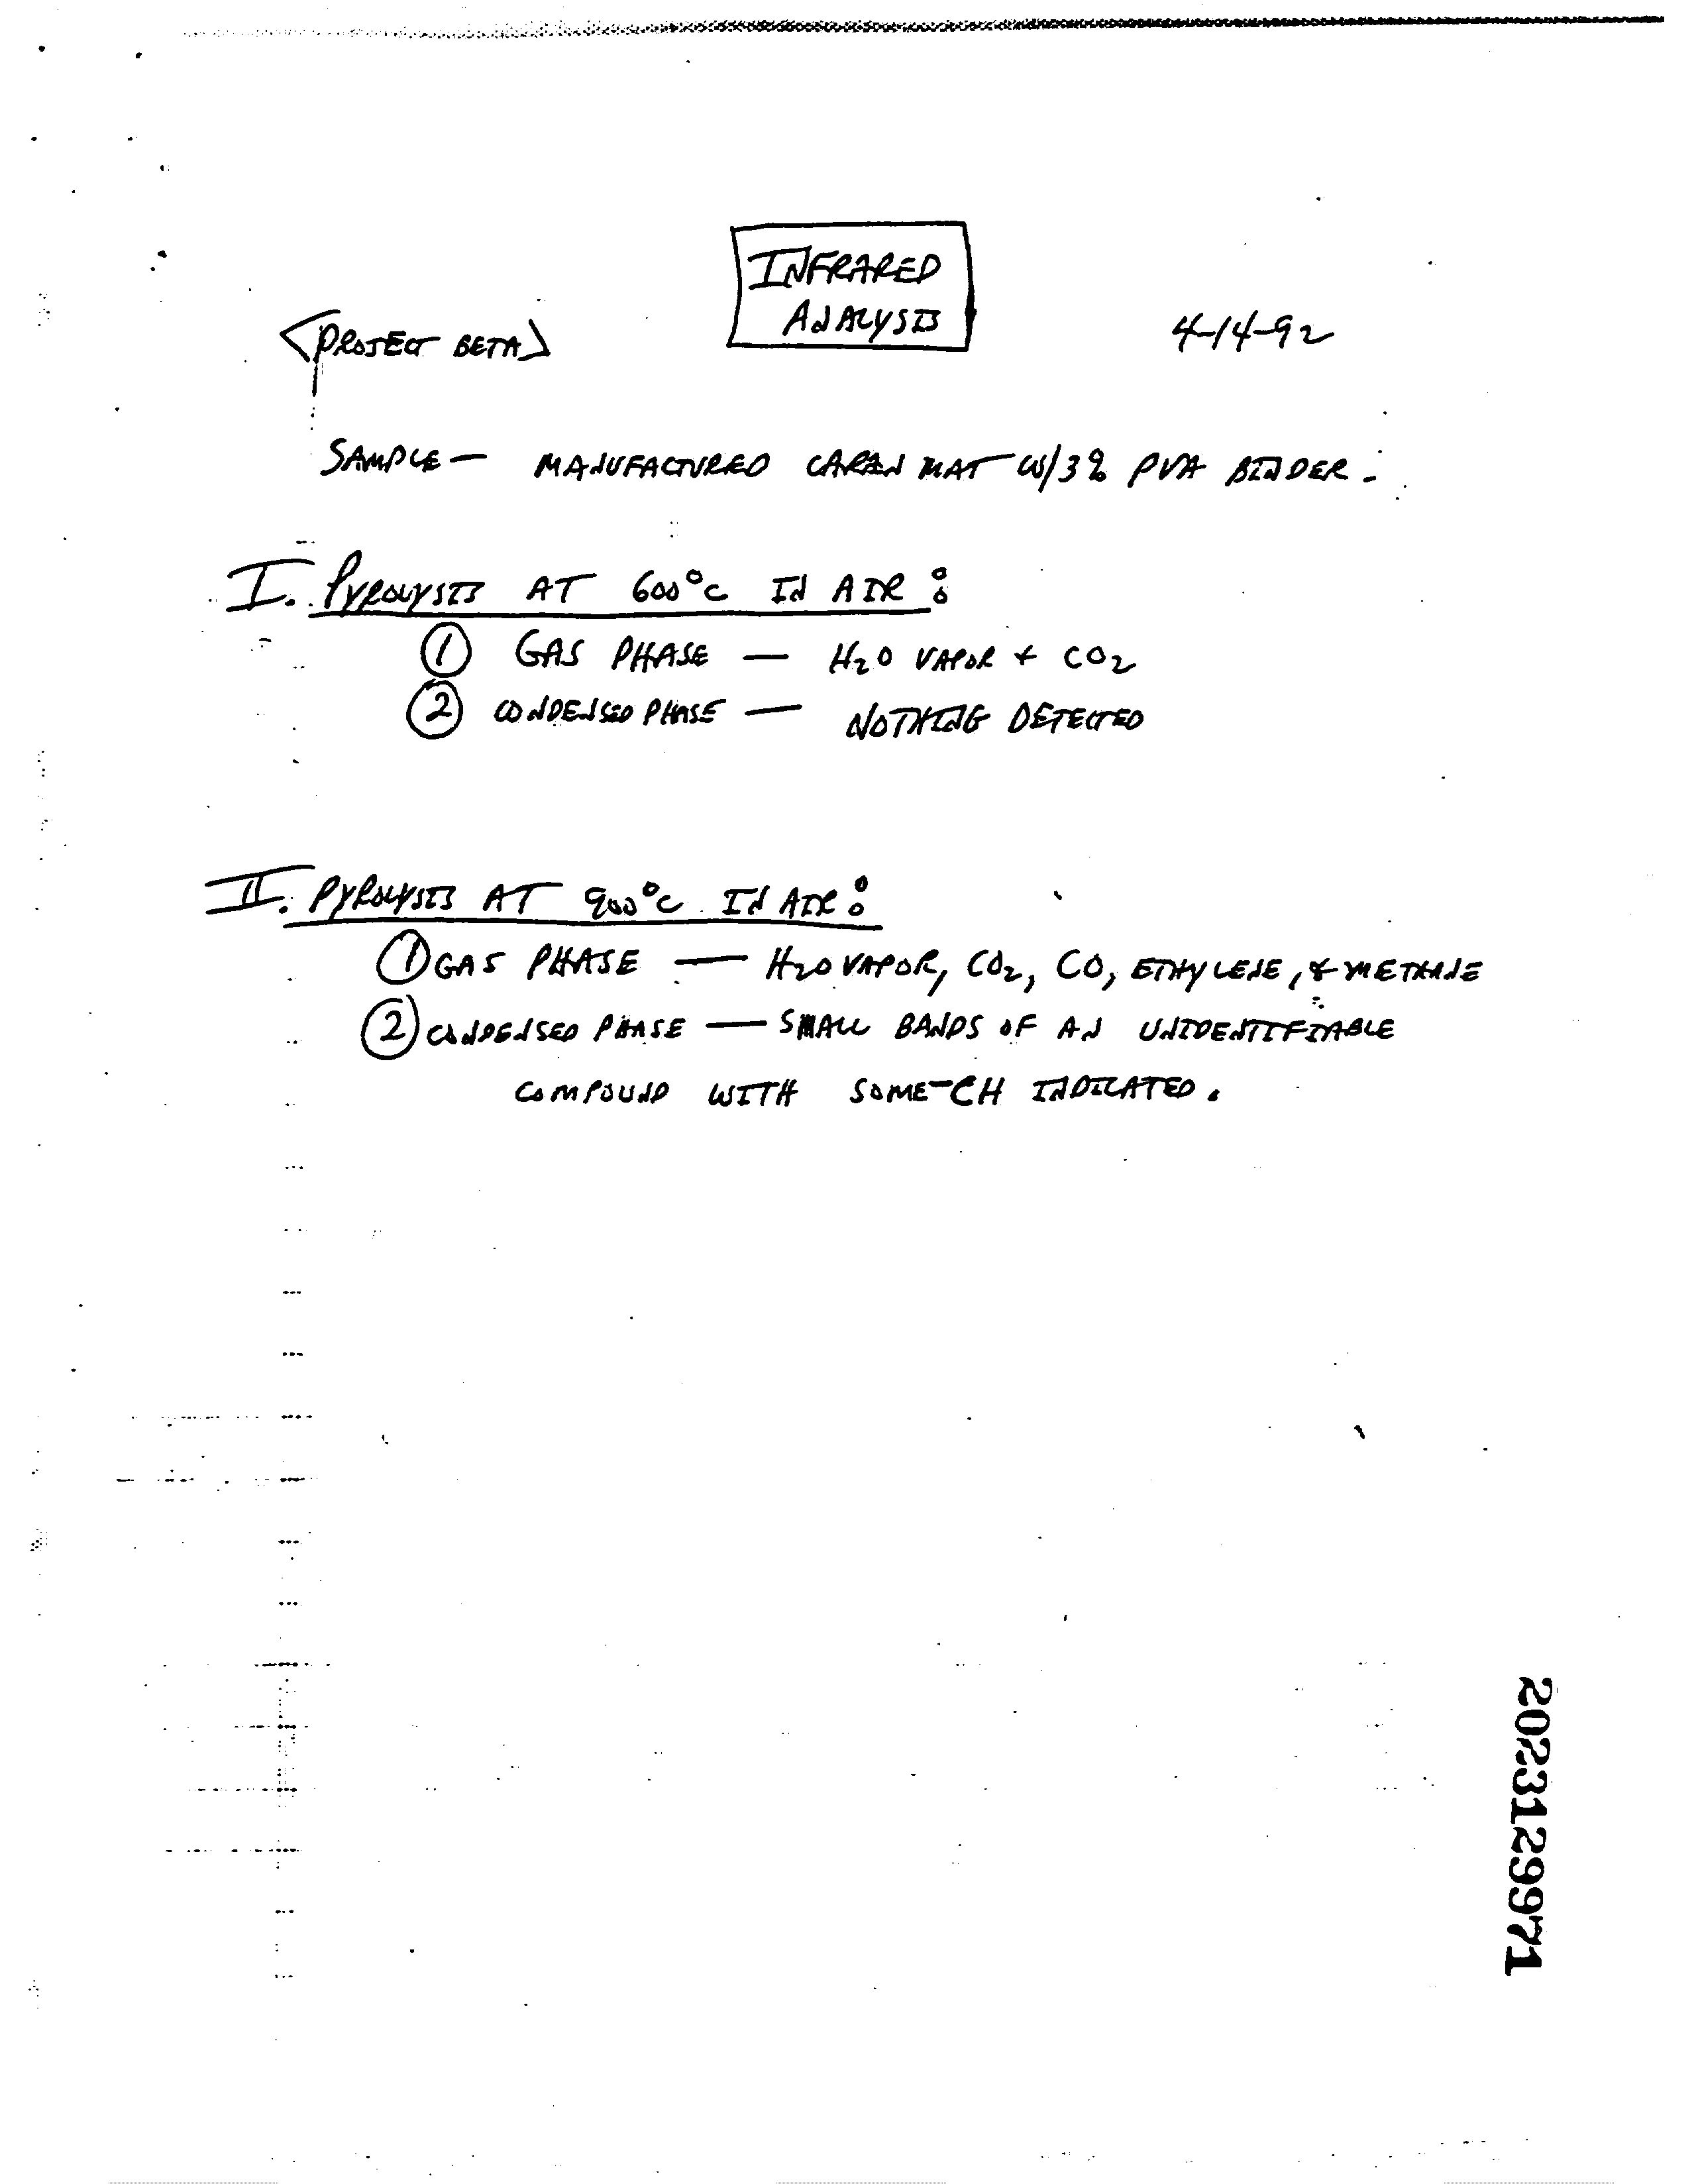 INFRARED
ANALYSIS
<PROJECT BETA>
4-14-92
SAMPLE — MANUFACTURED MAT W/3% PVA BINDER.
I. PYROLYSIS AT 600°C IN AIR:
① GAS PHASE — H2O VAPOR + CO2
② CONDENSED PHASE — NOTHING DETECTED
II. PYROLYSIS AT 900°C IN AIR:
① GAS PHASE — H2O VAPOR, CO2, CO, ETHYLENE, & METHANE
② CONDENSED PHASE — SMALL BANDS OF AN UNIDENTIFIABLE
COMPOUND WITH SOME -CH INDICATED.
2023129971